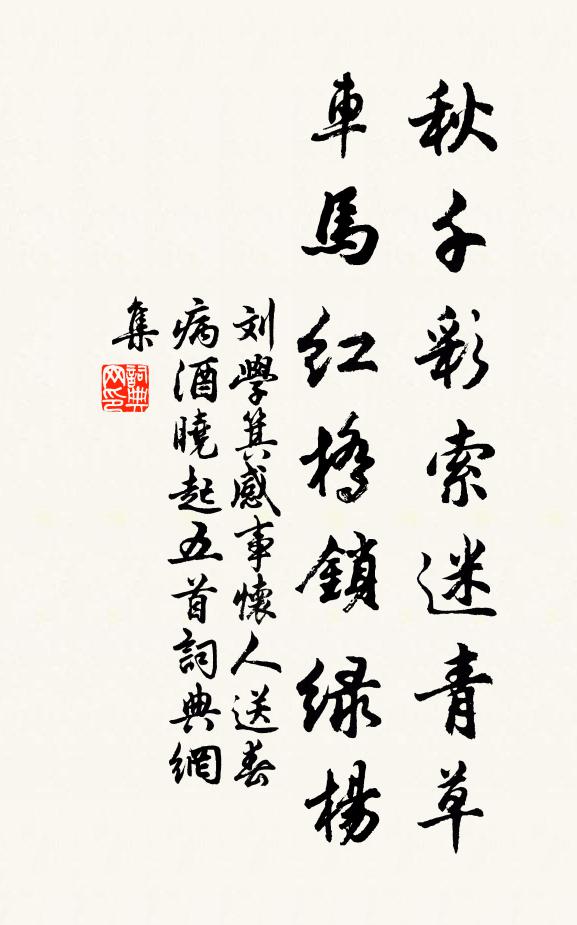 秋千彩索迷青草
車馬红橋鎖緑楊
刘學箕感事懷人送春
病酒曉起五首詞典網
集
詞典
网印